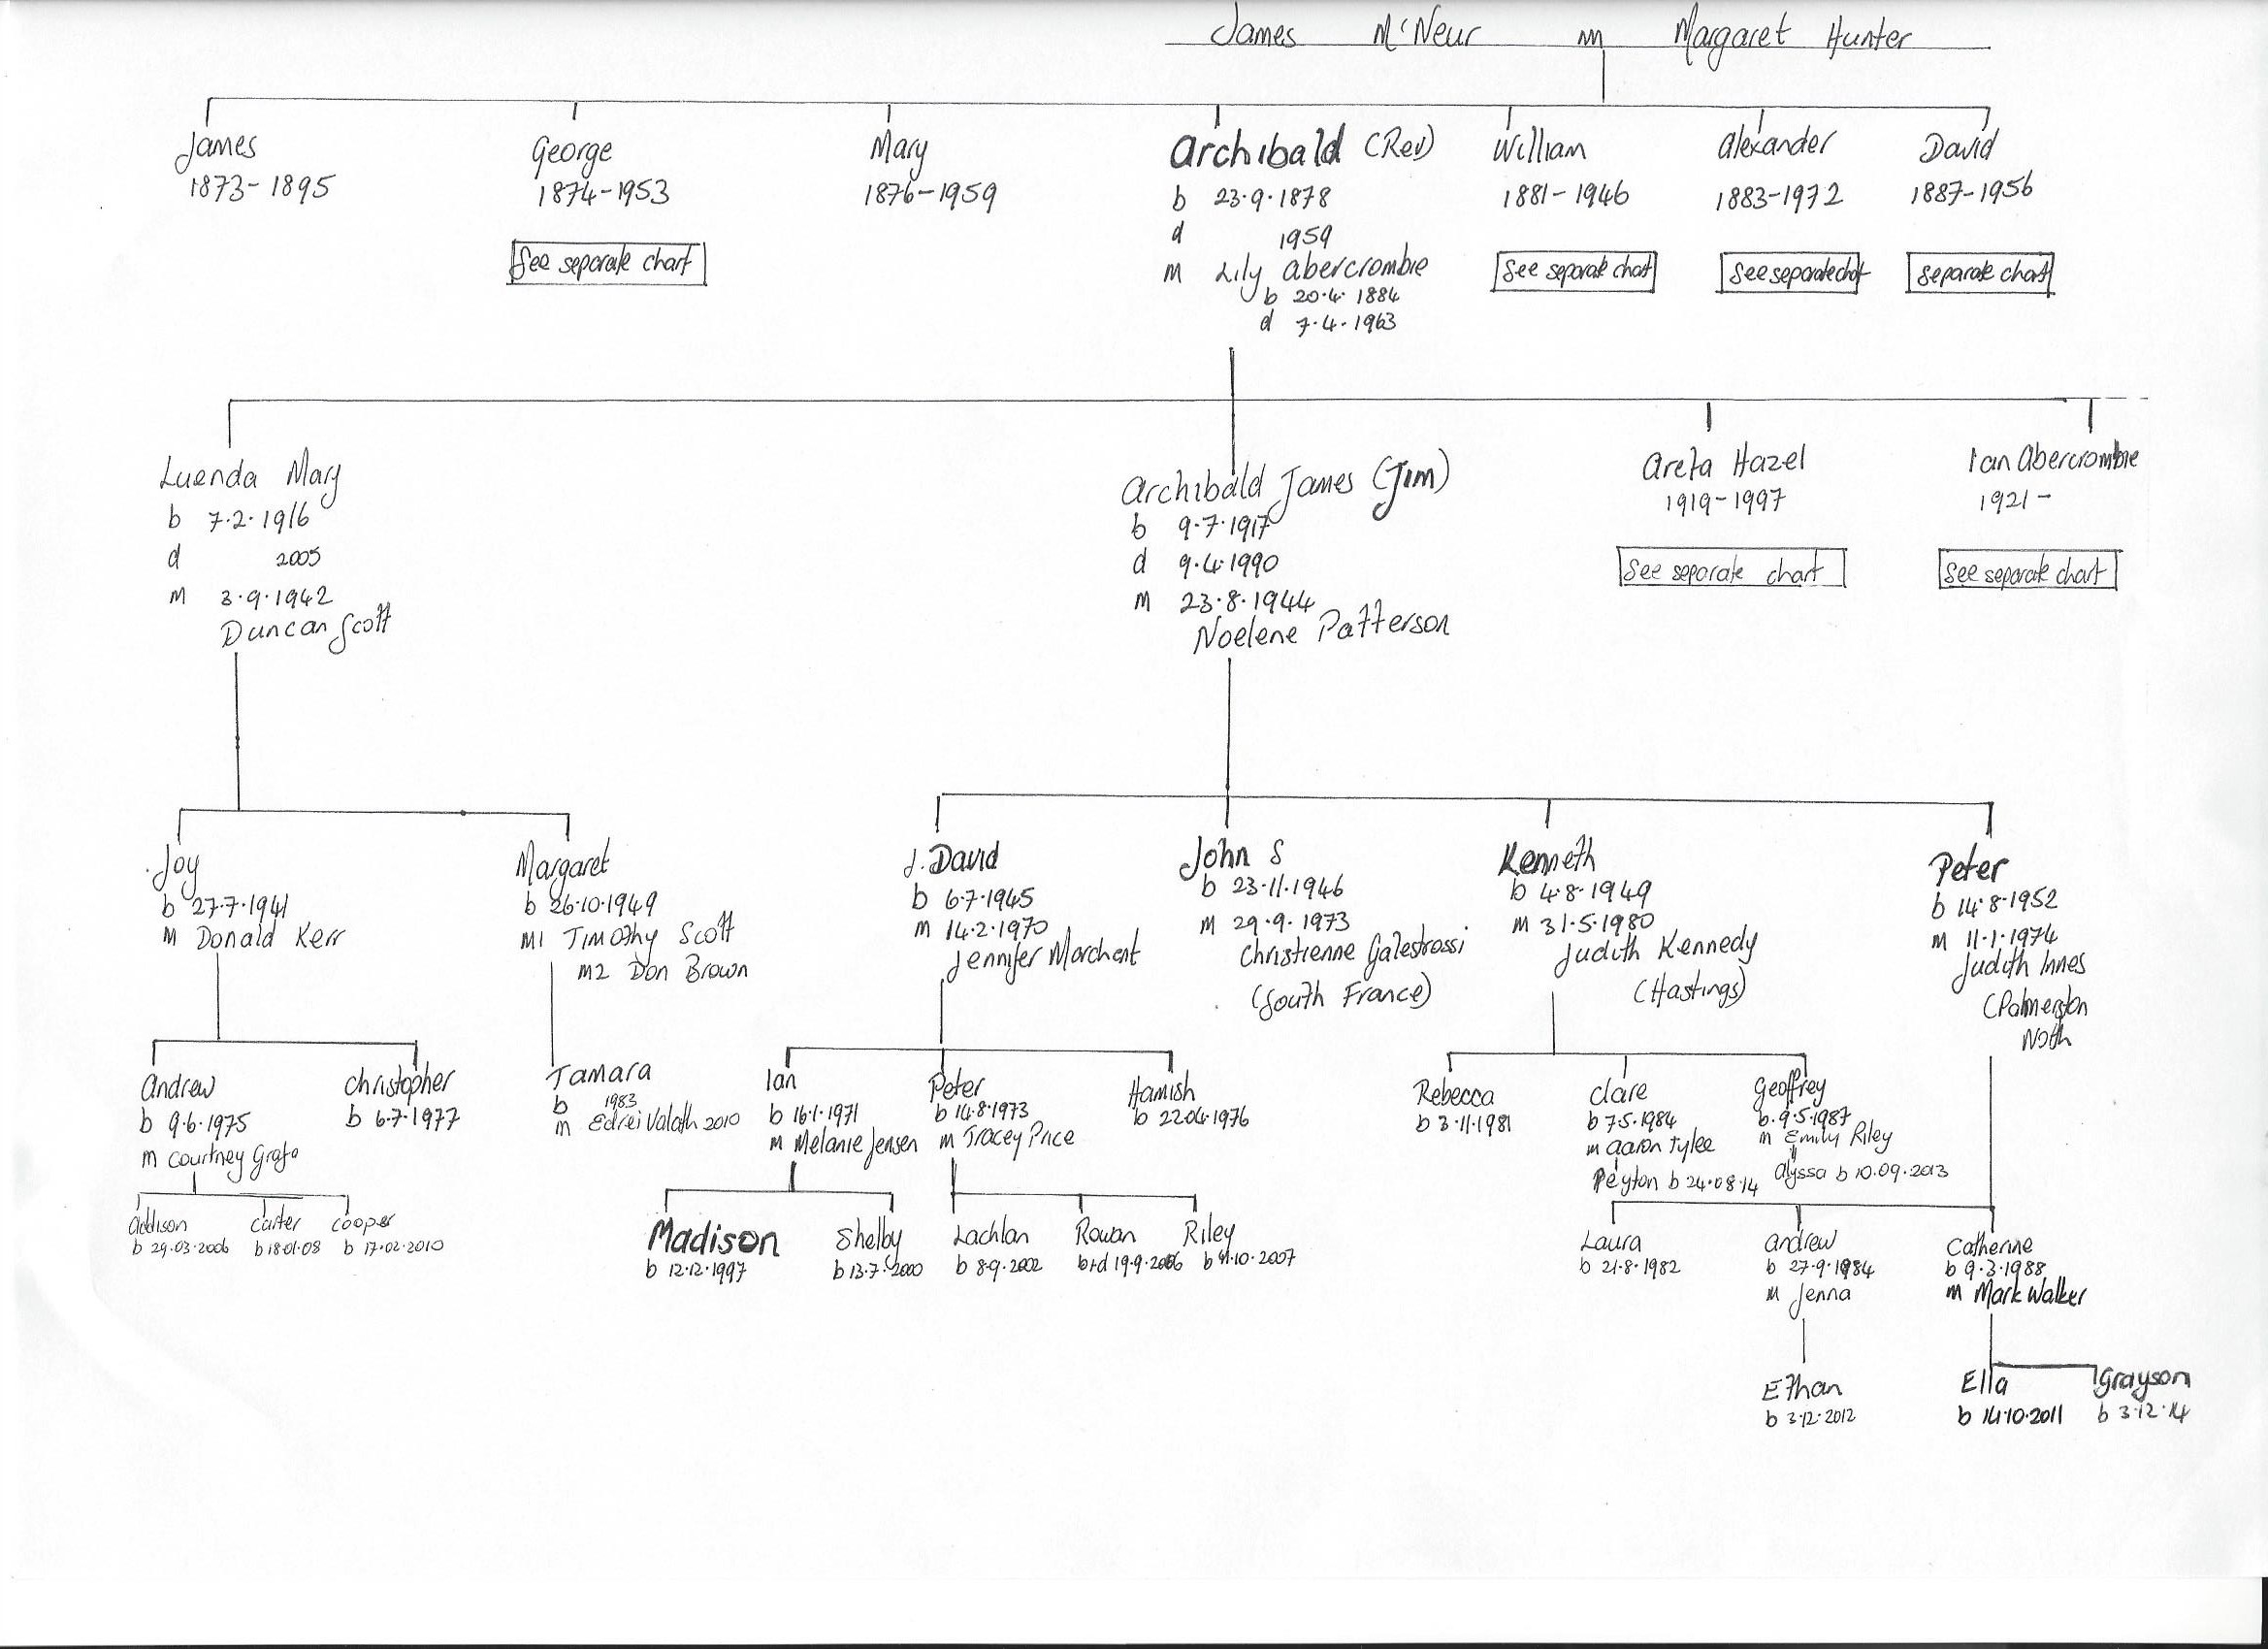 James McNeur m Margaret Hunter
James
1873-1895
George
1874-1953
See separate chart
Mary
1876-1959
Archibald (Rev)
b 23.9.1878
d 1959
m Lily Abercrombie
b 20.4.1884
d 7.4.1963
William
1881-1946
See separate chart
Alexander
1883-1972
See separate chart
David
1887-1956
separate chart
Luenda Mary
b 7.2.1916
d 2005
m 3.9.1942
Duncan Scott
Archibald James (Jim)
b 9.7.1917
d 9.4.1990
m 23.8.1944
Noelene Patterson
Areta Hazel
1919-1997
See separate chart
Ian Abercrombie
1921-
See separate chart
Joy
b 27.7.1941
m Donald Kerr
Margaret
b 26.10.1949
m1 Timothy Scott
m2 Don Brown
J. David
b 6.7.1945
m 14.2.1970
Jennifer Marchant
John S
b 23.11.1946
m 29.9.1973
Christienne Galestrossi
(South France)
Kenneth
b 4.8.1949
m 31.5.1980
Judith Kennedy
(Hastings)
Peter
b 14.8.1952
m 11.1.1974
Judith Innes
(Palmerston
Noth
Andrew
b 9.6.1975
m Courtney
Christopher
b 6.7.1977
Tamara
b 1983
m 2010
Ian
b 16.1.1971
m Melanie Jensen
Peter
b 14.8.1973
m Tracey Price
Hamish
b 22.04.1976
Rebecca
b 3.11.1981
Clare
b 7.5.1984
m Aaron Tylee
Peyton b 24.08.14
Geoffrey
b. 9.5.1987
m Emily Riley
Alyssa b 10.09.2013
Addison
b 29.03.2006
Carter
b 18.01.08
Cooper
b 17.02.2010
Madison
b 12.12.1997
Shelby
b 13.7.2000
Lachlan
b 8.9.2002
Rowan
b+d 19.9.2006
Riley
b 11.10.2007
Laura
b 21.8.1982
Andrew
b 27.9.1984
m Jenna
Catherine
b 9.3.1988
m Mark Walker
Ethan
b 3.12.2012
Ella
b 14.10.2011
Grayson
b 3.12.14